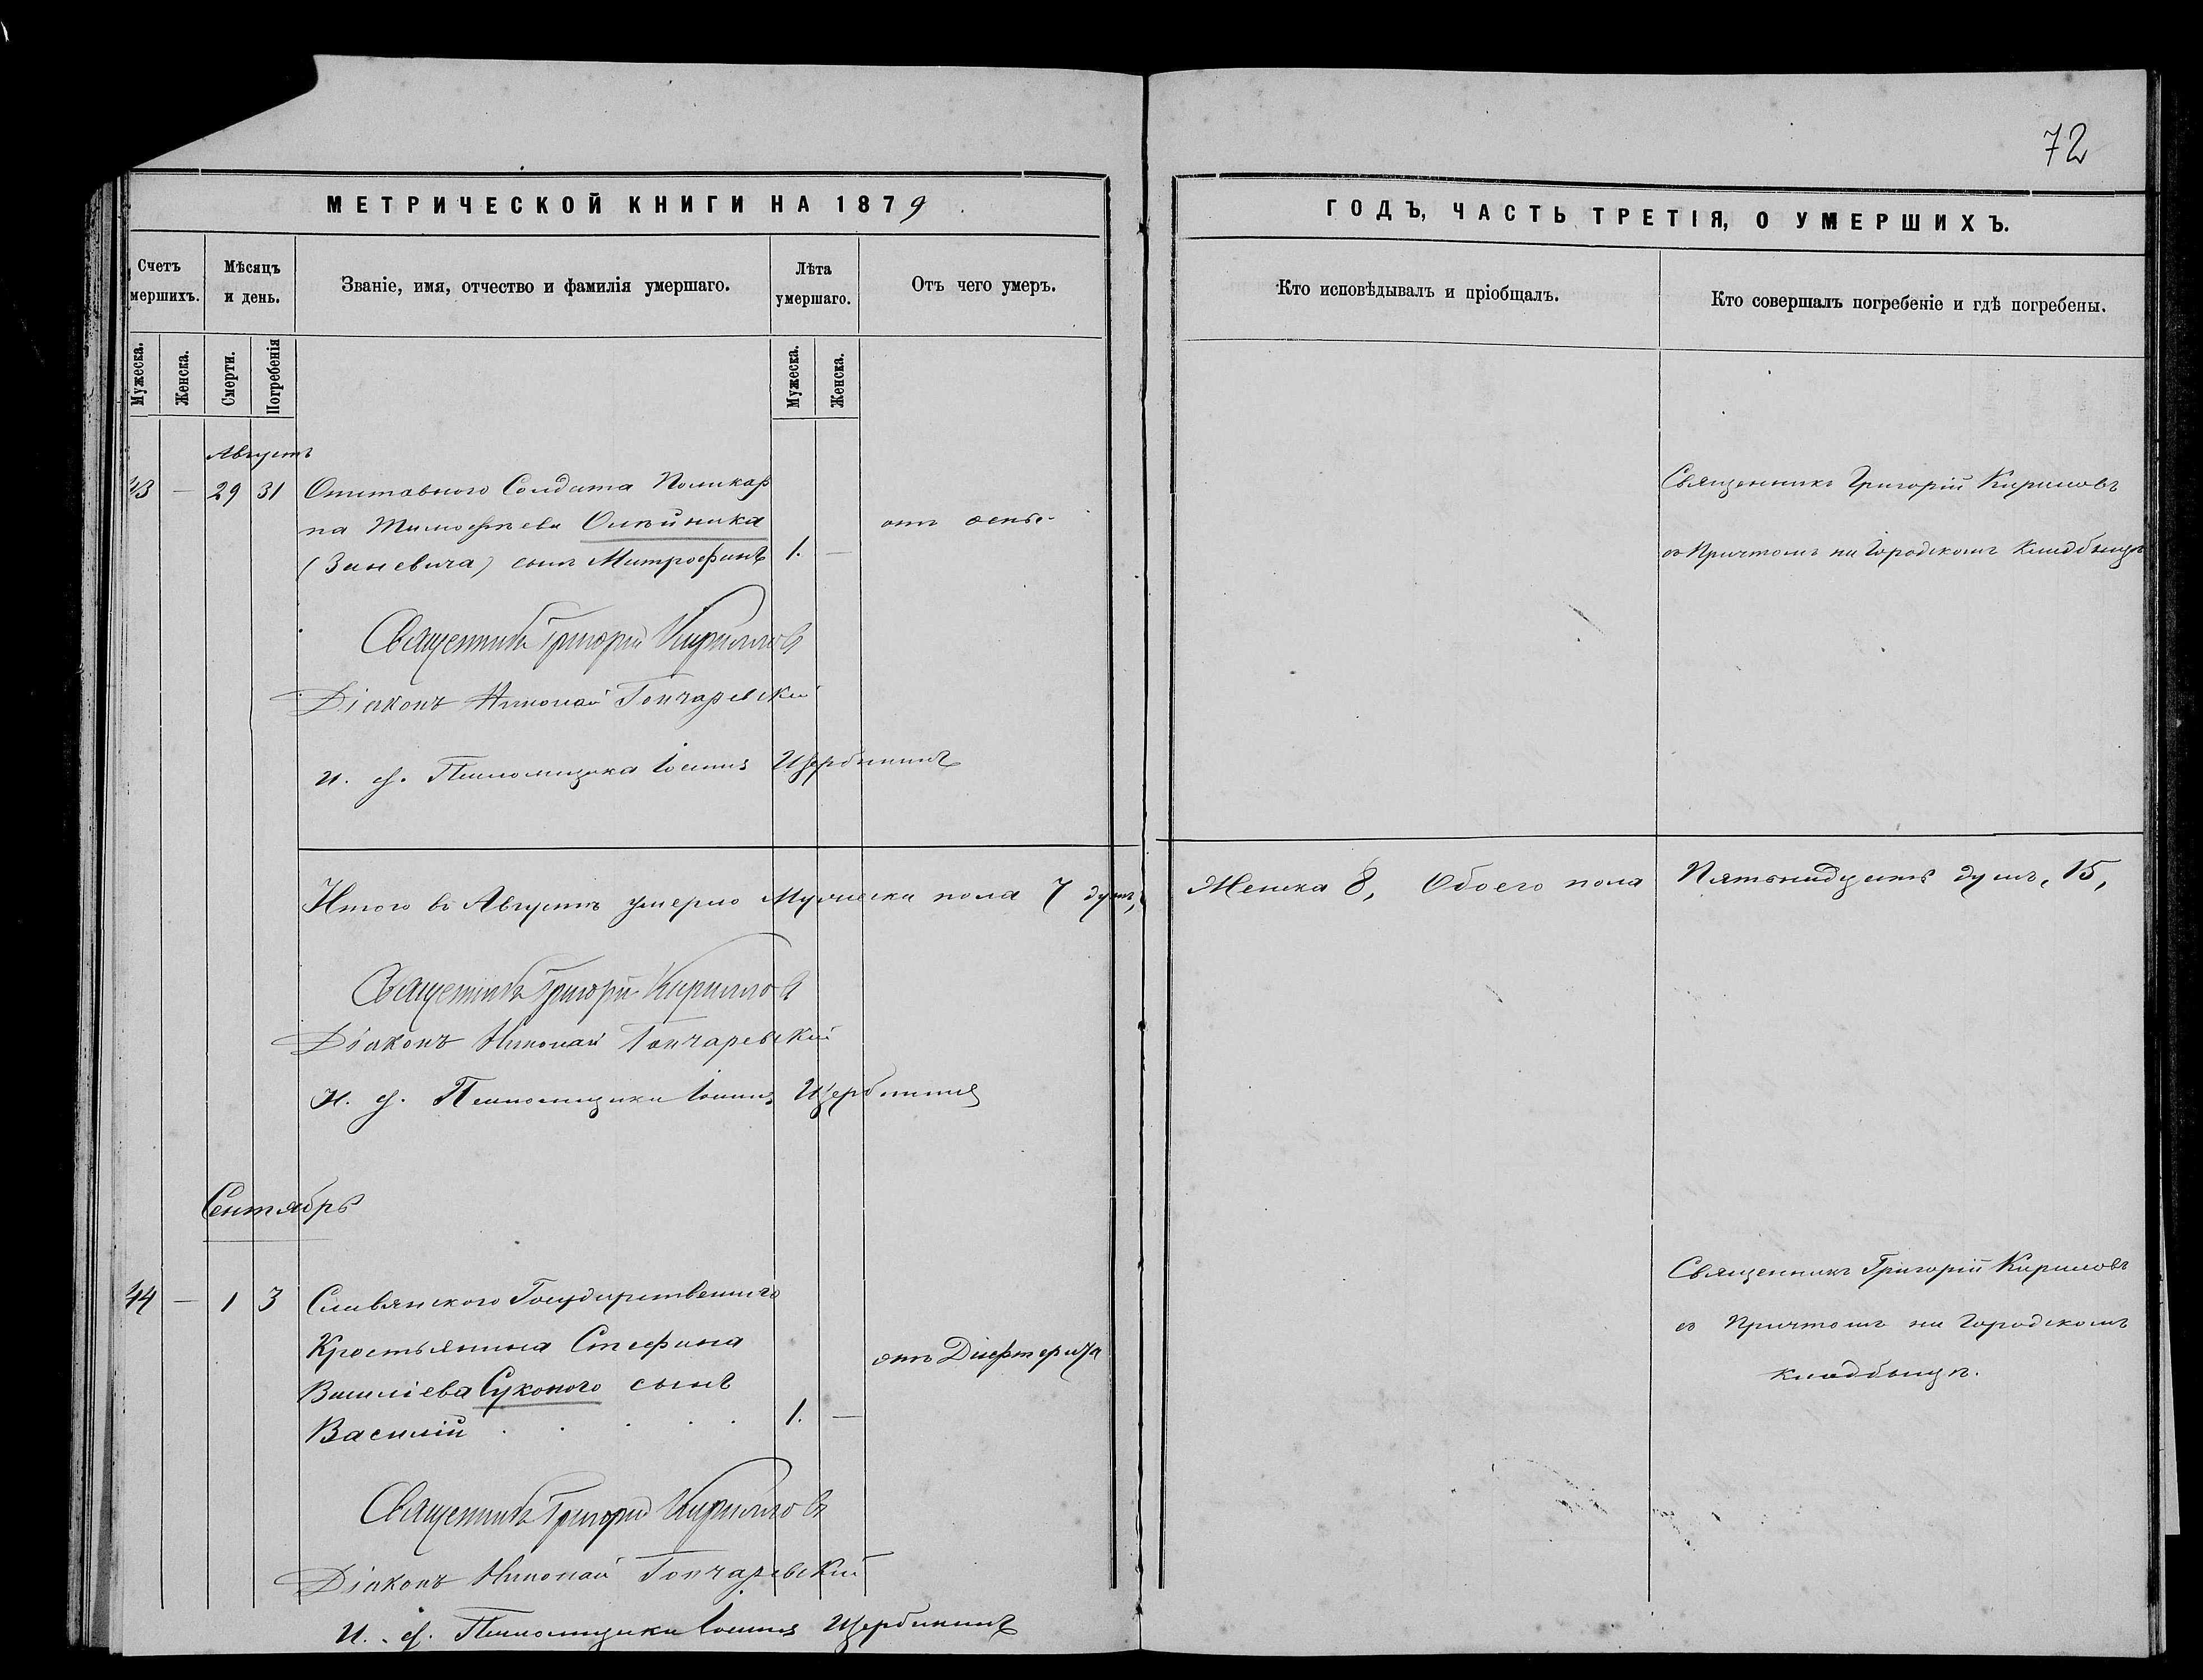 72
МЕТРИЧЕСКОЙ КНИГИ НА 1879
ГОДЪ, ЧАСТЬ ТРЕТІЯ, О УМЕРШИХЪ.
Счетъ мершихъ.
Мѣсяцъ и день.
Званіе, имя, отчество и фамилія умершаго.
Лѣта умершаго.
Отъ чего умеръ.
Кто исповѣдывалъ и пріобщалъ.
Кто совершалъ погребеніе и гдѣ погребены.
Мужеска.
Женска.
Смерти.
Погребенія
Мужеска.
Женска.
Августъ
43 — 29 31 Отставного Солдата Поликар
па Тимофѣева Олѣйника
(Заневича) сынъ Митрофанъ 1. —
отъ оспы.
Священникъ Григорій Кириловъ
съ Причтомъ на Городскомъ Кладбищѣ
Священникъ Григорій Кирилловъ
Діаконъ Николай Гончаревскій
И. д. Псаломщика Іоаннъ Щербининъ
Итого въ Августѣ умерло Мужеска пола 7 душъ,
Женска 8, Обоего пола Пятьнадцать душъ, 15,
Священникъ Григорій Кирилловъ
Діаконъ Николай Гончаревскій
И. д. Псаломщика Іоаннъ Щербининъ
Сентябрь
44 — 1 3 Славянского Государственнаго
Крестьянина Стефана
Василіева Суконого сынъ
Василій . . . . 1. —
отъ Дифтерита
Священникъ Григорій Кириловъ
съ Причтомъ на Городскомъ
Кладбищѣ.
Священникъ Григорій Кирилловъ
Діаконъ Николай Гончаревскій
И. д. Псаломщика Іоаннъ Щербининъ